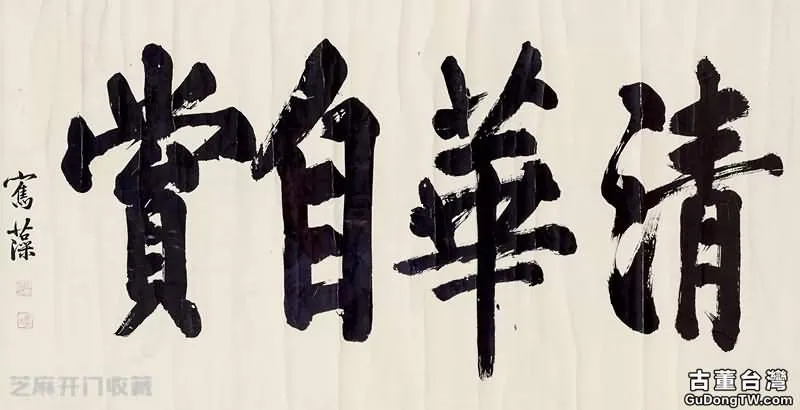 清華自賞
寯藻
芝麻开门收藏
古董台灣
GuDongTW.com